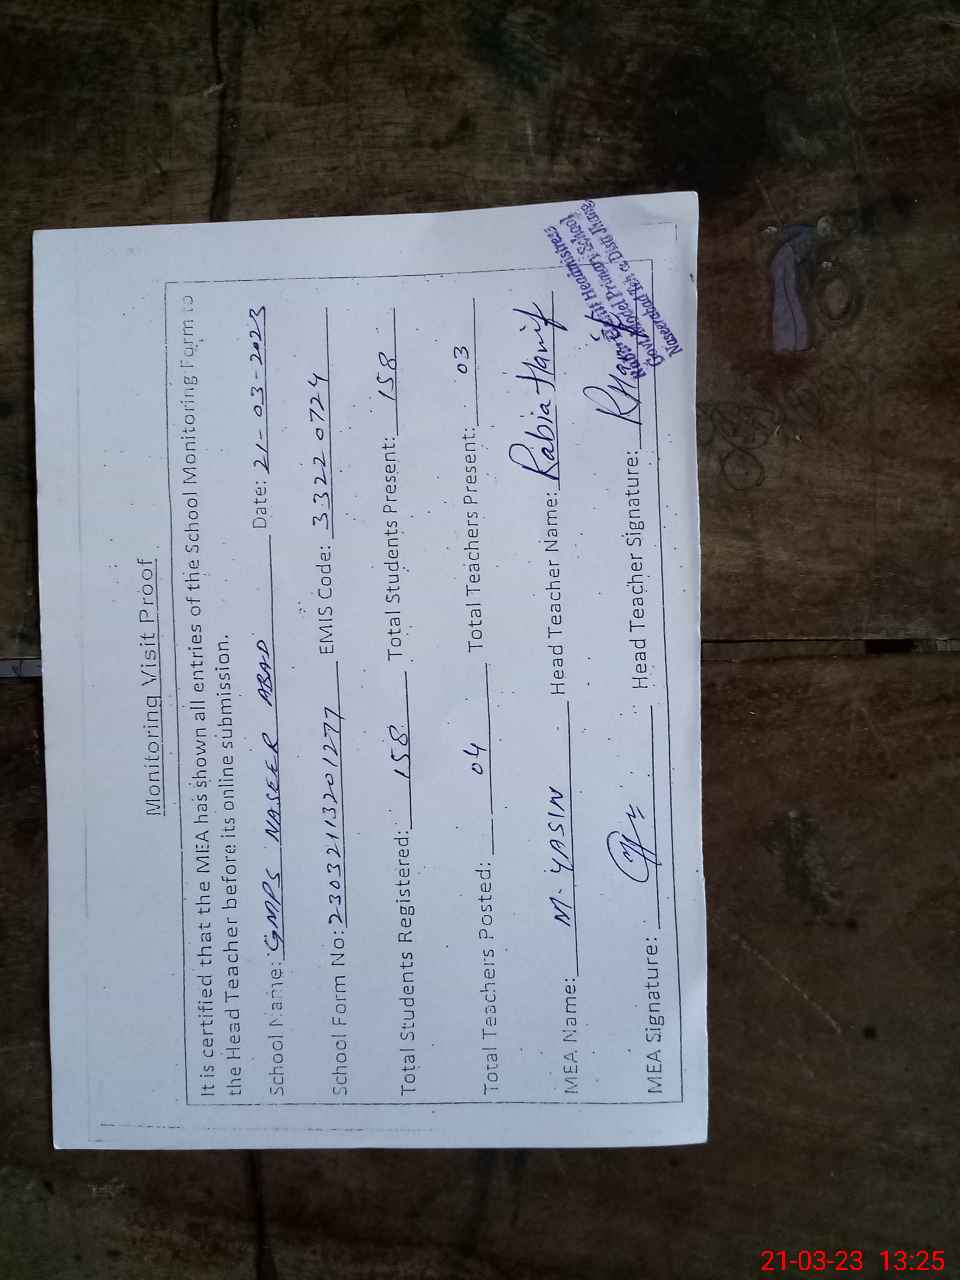 Monitoring Visit Proof
It is certified that the MEA has shown all entries of the School Monitoring Form to
the Head Teacher before its online submission.
School Name: GMPS NASEER ABAD Date: 21-03-2023
School Form No: 23032113201277 EMIS Code: 33220724
Total Students Registered: 158 Total Students Present: 158
Total Teachers Posted: 04 Total Teachers Present: 03
MEA Name: M. YASIN Head Teacher Name: Rabia Hanif
MEA Signature: Head Teacher Signature: RHanif
Headmistress
Govt. Model Primary School
Naseerabad Teh & Distt Jhang
21-03-23 13:25